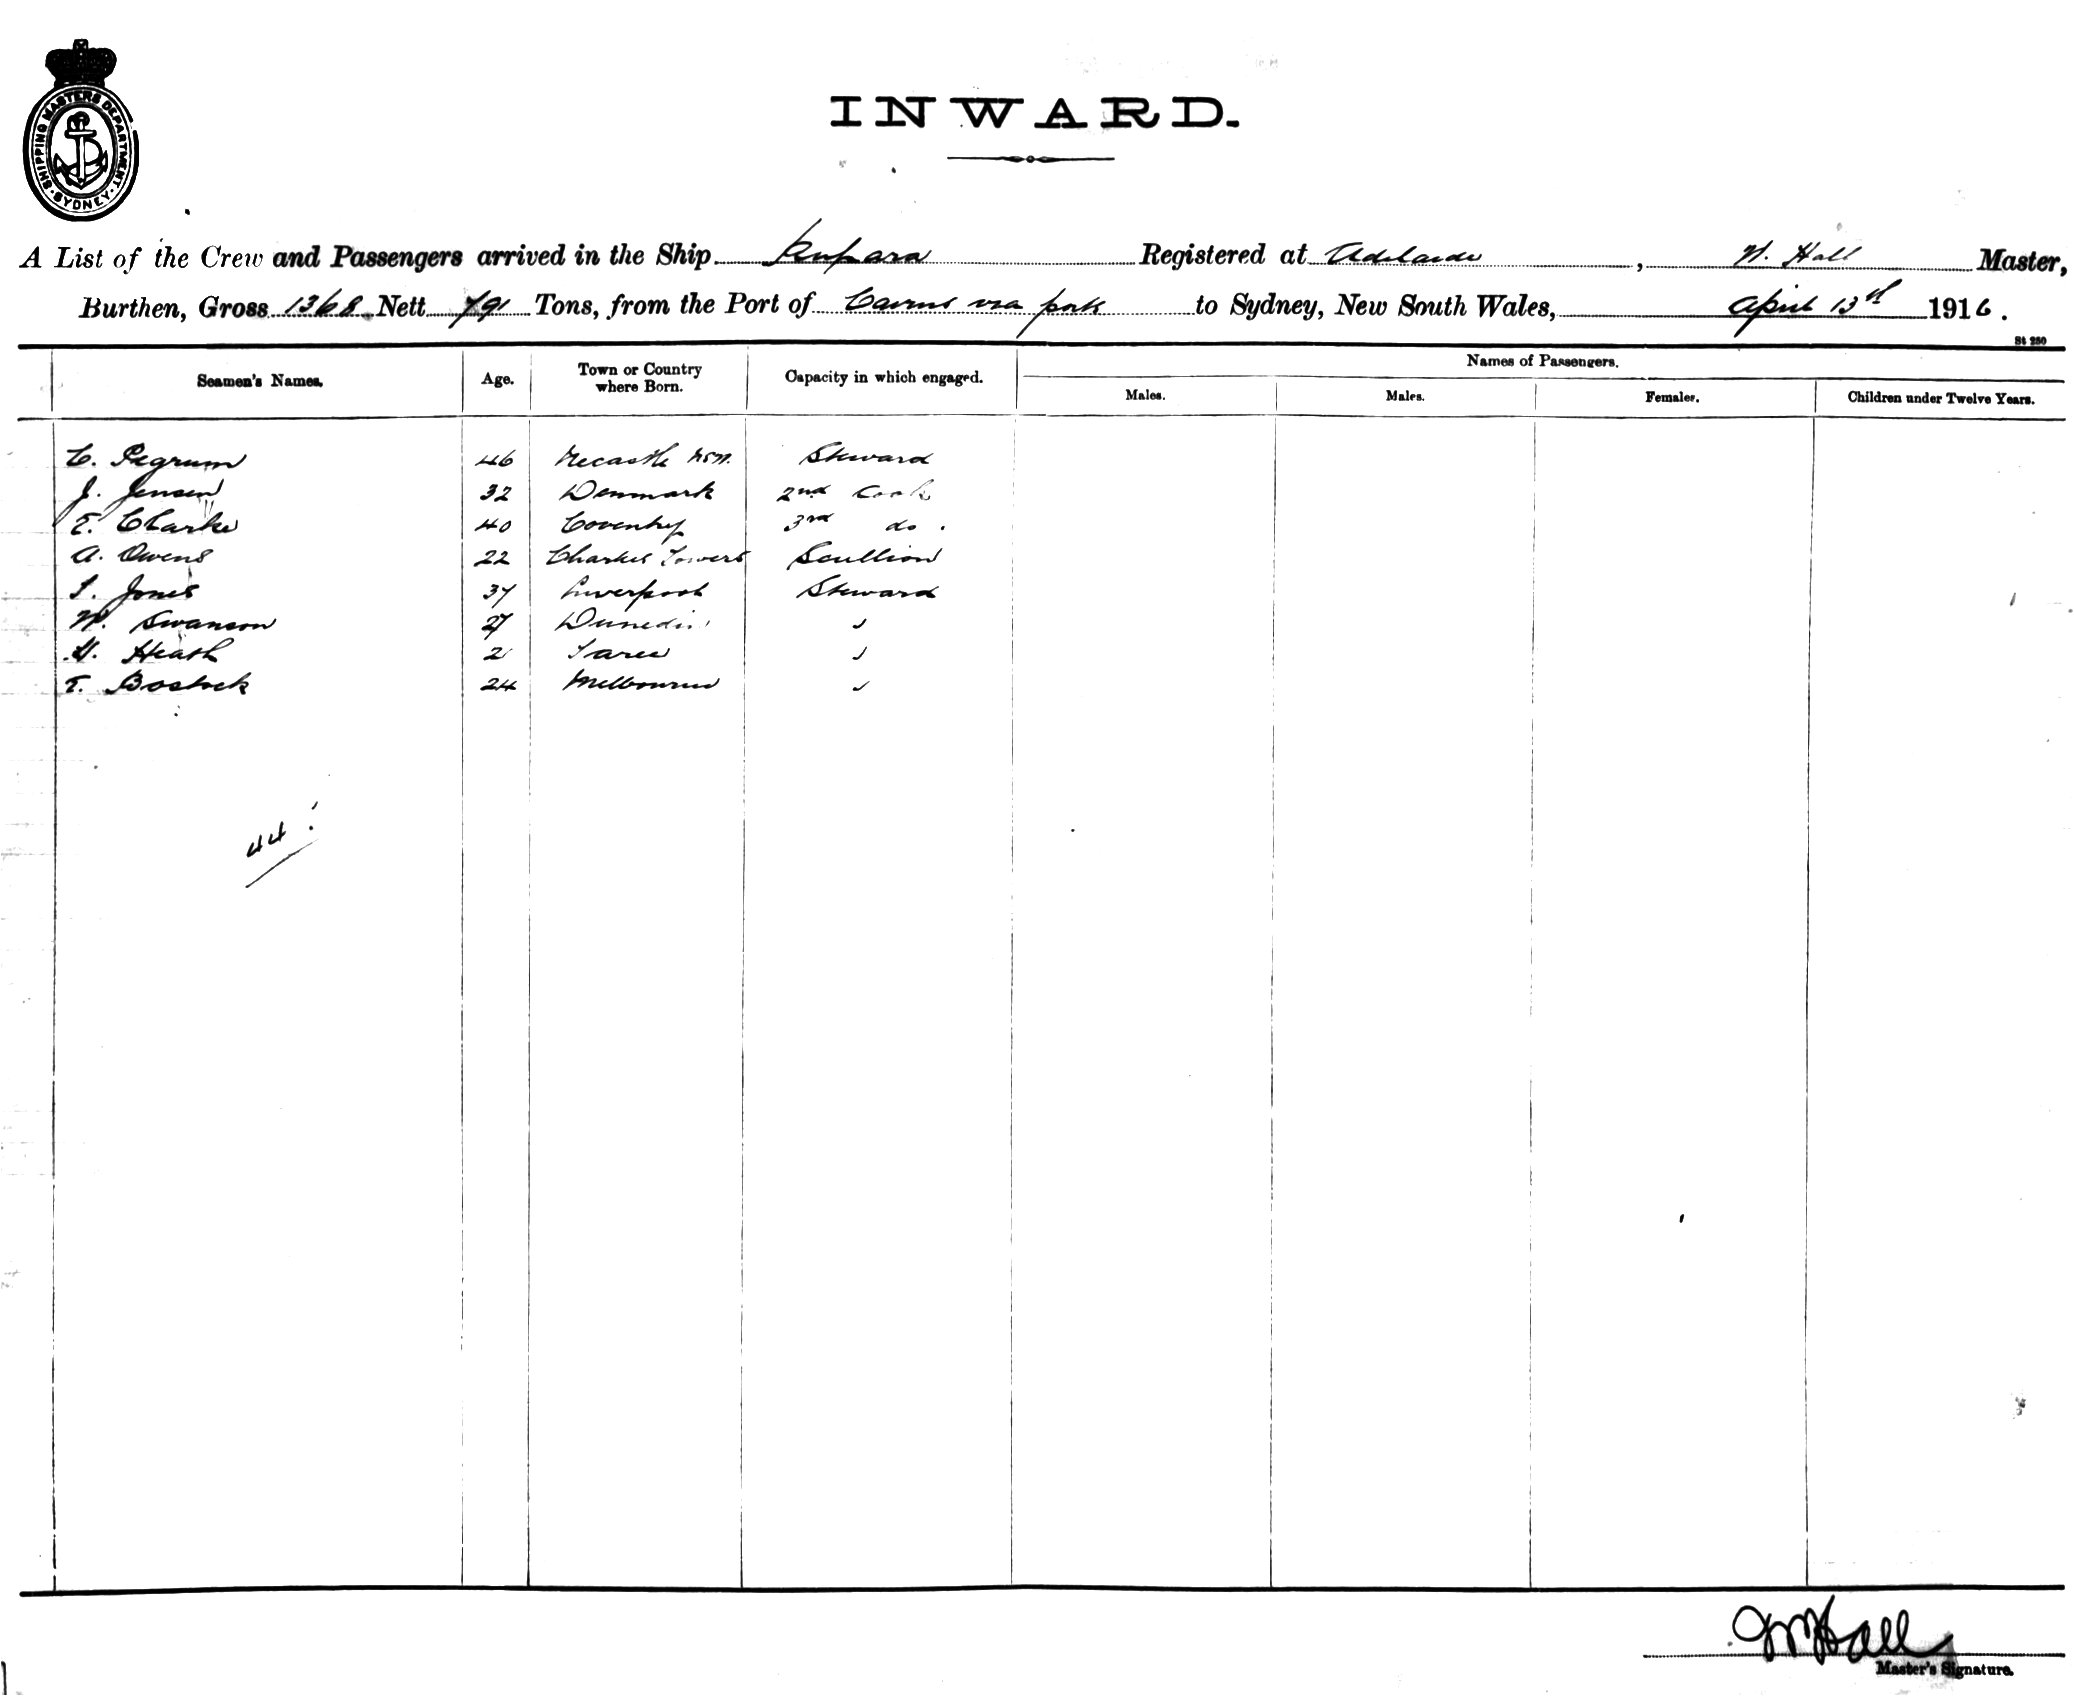 SHIPPING MASTERS DEPARTMENT. SYDNEY
INWARD.
A List of the Crew and Passengers arrived in the Ship Registered at Adelaide, W. Hall Master,
Burthen, Gross 1368 Nett 791 Tons, from the Port of Cairns via ports to Sydney, New South Wales, April 13th 1916.
St 250
Seamen's Names. Age. Town or Country where Born. Capacity in which engaged. Names of Passengers.
Males. Males. Females. Children under Twelve Years.
C. Pegrum 46 Necastle NSW. Steward
J. Jensen 32 Denmark 2nd Cook
E. Clarke 40 Coventry 3rd do.
A. Owens 22 Charters Towers Scullion
Jones 37 Liverpool Steward
W. Swanson 27 Dunedin "
H. Heath 2 Taree "
T. Bostock 24 Melbourne "
44
Hall
Master's Signature.